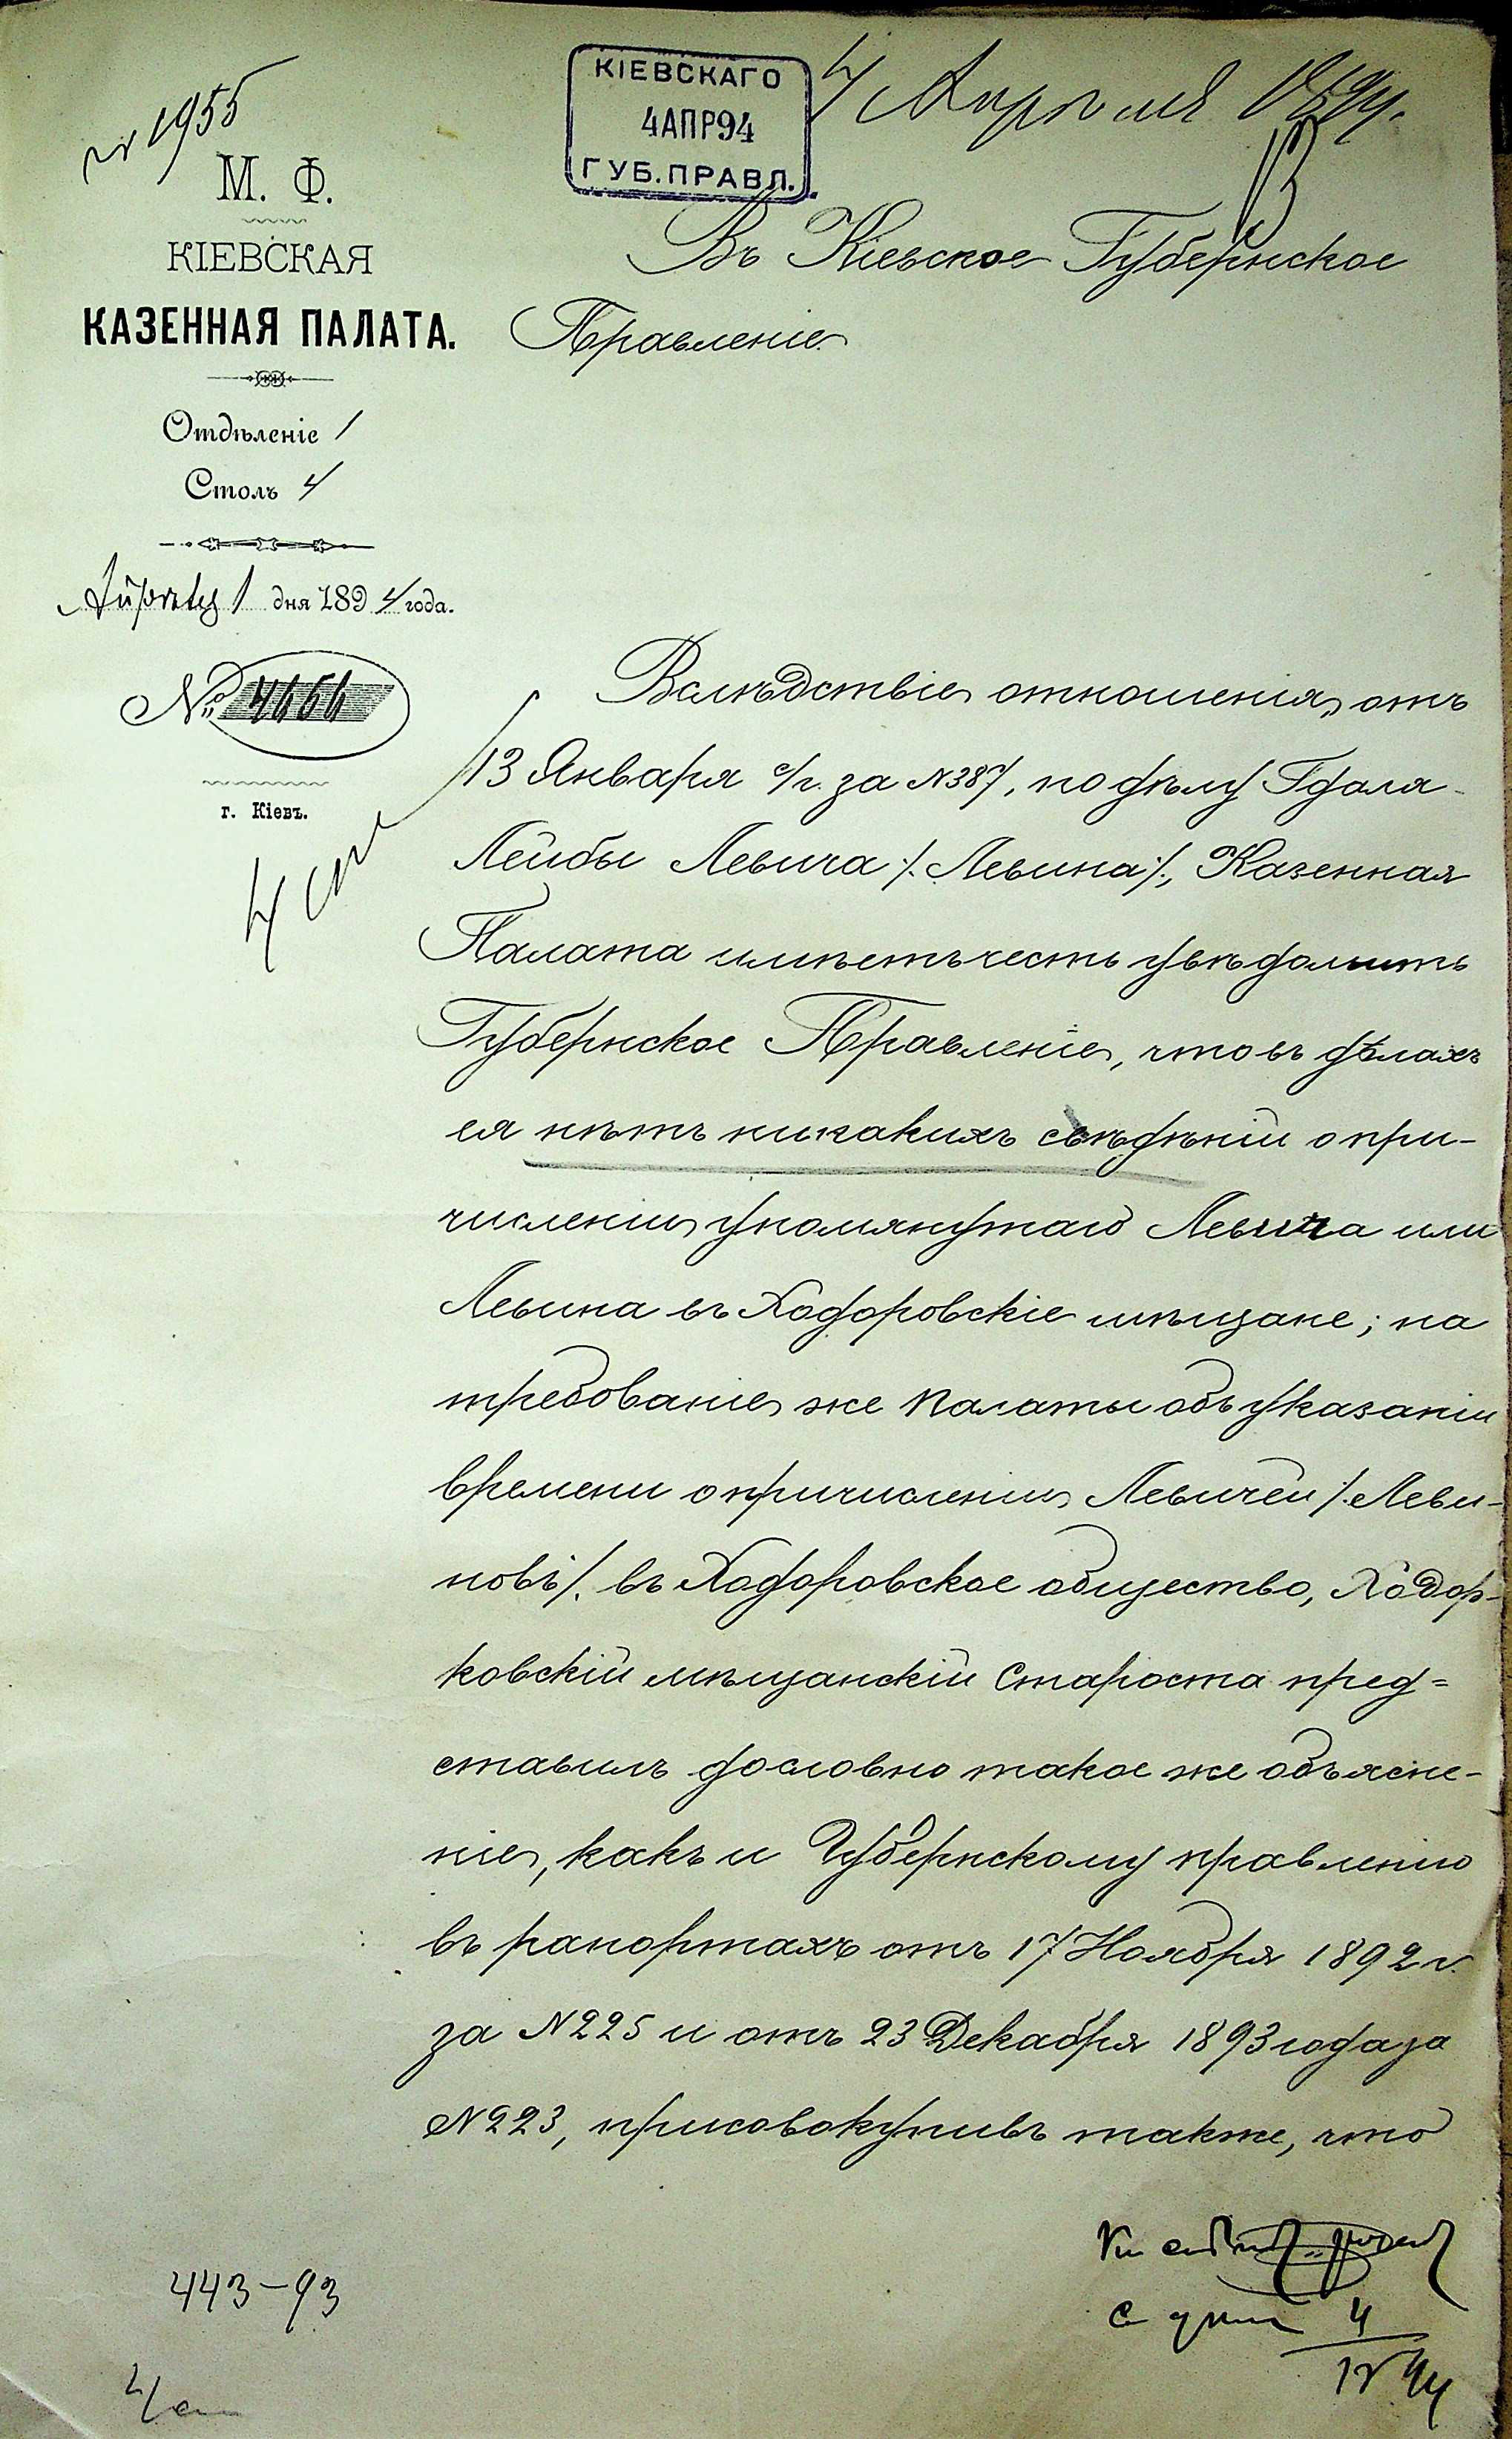 № 1955
КІЕВСКАГО
4АПР94
ГУБ.ПРАВЛ.
4 Апреля 1894.
М. Ф.
КІЕВСКАЯ
КАЗЕННАЯ ПАЛАТА.
Отдѣленіе 1
Столъ 4
Апрѣля 1 дня 1894 года.
№
г. Кіевъ.
4 ст
Въ Кіевское Губернское
Правленіе
Вслѣдствіе отношенія, отъ
13 Января с/г. за N387, по дѣлу Гдаля-
Лейбы Левича /. Левина /., Казенная
Палата имѣетъ честь увѣдомить
Губернское Правленіе, что въ дѣлахъ
ея нѣтъ никакихъ свѣдѣній о при-
численіи упомянутаго Левича или
Левина въ Ходоровскіе мѣщане; на
требованіе же Палаты объ указаніи
времени о причисленіи Левичей /. Леви-
новъ /. въ Ходоровское общество, Ходор-
ковскій мѣщанскій Староста пред=
ставилъ дословно такое же объясне-
ніе, какъ и Губернскому правленію
въ рапортахъ отъ 17 Ноября 1892 г.
за N225 и отъ 23 Декабря 1893 года за
N223, присовокупивъ также, что
443-93
4